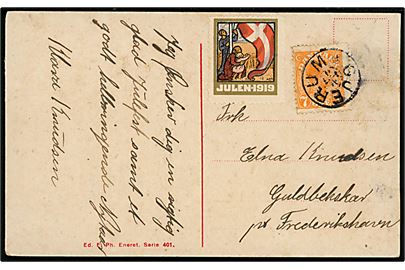 Jeg ønsker dig en rigtig
glad Julefest samt et
godt
Klara Knudsen
JULEN·1919
7
GUERUM
Frk
Elna Knudsen
Guldbekskær
pr Frederikshavn
Ed. F. Ph. Eneret. Serie 401.